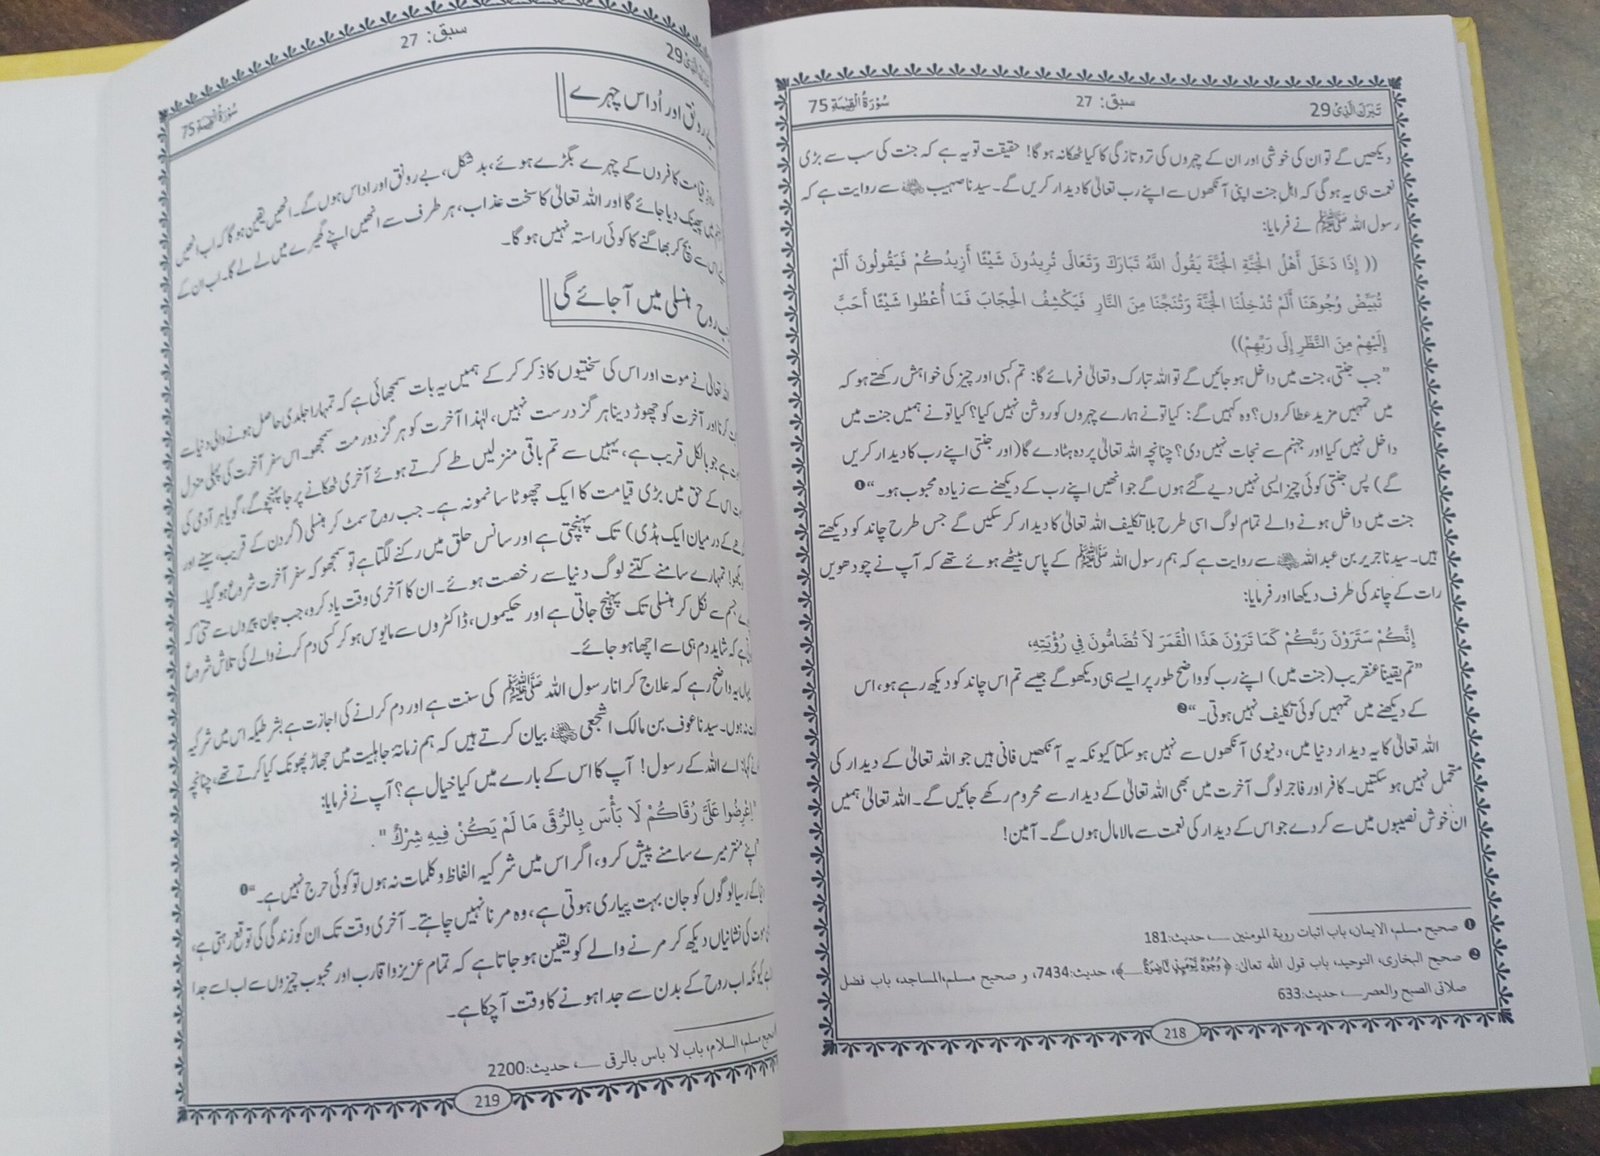 تَبٰرَكَ الَّذِیْ 29
سبق: 27
سُوْرَةُ الْقِیٰمَةِ 75
دیکھیں گے تو ان کی خوشی اور ان کے چہروں کی تروتازگی کا کیا ٹھکانہ ہو گا! حقیقت تو یہ ہے کہ جنت کی سب سے بڑی
نعمت ہی یہ ہو گی کہ اہلِ جنت اپنی آنکھوں سے اپنے رب تعالیٰ کا دیدار کریں گے۔ سیدنا صہیب رضی اللہ عنہ سے روایت ہے کہ
رسول اللہ ﷺ نے فرمایا:
(( إِذَا دَخَلَ أَهْلُ الْجَنَّةِ الْجَنَّةَ يَقُولُ اللَّهُ تَبَارَكَ وَتَعَالَى تُرِيدُونَ شَيْئًا أَزِيدُكُمْ فَيَقُولُونَ أَلَمْ
تُبَيِّضْ وُجُوهَنَا أَلَمْ تُدْخِلْنَا الْجَنَّةَ وَتُنَجِّنَا مِنَ النَّارِ فَيَكْشِفُ الْحِجَابَ فَمَا أُعْطُوا شَيْئًا أَحَبَّ
إِلَيْهِمْ مِنَ النَّظَرِ إِلَى رَبِّهِمْ))
”جب جنتی، جنت میں داخل ہو جائیں گے تو اللہ تبارک و تعالیٰ فرمائے گا: تم کسی اور چیز کی خواہش رکھتے ہو کہ
میں تمہیں مزید عطا کروں؟ وہ کہیں گے: کیا تو نے ہمارے چہروں کو روشن نہیں کیا؟ کیا تو نے ہمیں جنت میں
داخل نہیں کیا اور جہنم سے نجات نہیں دی؟ چنانچہ اللہ تعالیٰ پردہ ہٹا دے گا (اور جنتی اپنے رب کا دیدار کریں
گے) پس جنتی کوئی چیز ایسی نہیں دیے گئے ہوں گے جو انھیں اپنے رب کے دیکھنے سے زیادہ محبوب ہو۔“❶
جنت میں داخل ہونے والے تمام لوگ اسی طرح بلا تکلیف اللہ تعالیٰ کا دیدار کر سکیں گے جس طرح چاند کو دیکھتے
ہیں۔ سیدنا جریر بن عبد اللہ رضی اللہ عنہ سے روایت ہے کہ ہم رسول اللہ ﷺ کے پاس بیٹھے ہوئے تھے کہ آپ نے چودھویں
رات کے چاند کی طرف دیکھا اور فرمایا:
إِنَّكُمْ سَتَرَوْنَ رَبَّكُمْ كَمَا تَرَوْنَ هَذَا الْقَمَرَ لاَ تُضَامُّونَ فِي رُؤْيَتِهِ،
”تم یقینا عنقریب (جنت میں) اپنے رب کو واضح طور پر ایسے ہی دیکھو گے جیسے تم اس چاند کو دیکھ رہے ہو، اس
کے دیکھنے میں تمہیں کوئی تکلیف نہیں ہوتی۔“❷
اللہ تعالیٰ کا یہ دیدار دنیا میں، دنیوی آنکھوں سے نہیں ہو سکتا کیونکہ یہ آنکھیں فانی ہیں جو اللہ تعالیٰ کے دیدار کی
متحمل نہیں ہو سکتیں۔ کافر اور فاجر لوگ آخرت میں بھی اللہ تعالیٰ کے دیدار سے محروم رکھے جائیں گے۔ اللہ تعالیٰ ہمیں
ان خوش نصیبوں میں سے کر دے جو اس کے دیدار کی نعمت سے مالا مال ہوں گے۔ آمین!
❶ صحیح مسلم، الایمان، باب اثبات رویة المومنین ۔۔۔، حدیث:181
❷ صحیح البخاری، التوحید، باب قول اللہ تعالیٰ: ﴿وُجُوْهٌ یَّوْمَىِٕذٍ نَّاضِرَةٌ۔۔۔﴾، حدیث:7434، و صحیح مسلم،المساجد، باب فضل
صلاتی الصبح والعصر۔۔۔، حدیث:633
218
29
سبق: 27
سُوْرَةُ الْقِیٰمَةِ 75
رونق اور اُداس چہرے
قیامت کافروں کے چہرے بگڑے ہوئے، بد شکل، بے رونق اور اداس ہوں گے۔ انھیں یقین ہو گا کہ اب انھیں
میں پھینک دیا جائے گا اور اللہ تعالیٰ کا سخت عذاب، ہر طرف سے انھیں اپنے گھیرے میں لے لے گا۔ اب ان کے
اس سے بچ کر بھاگنے کا کوئی راستہ نہیں ہو گا۔
روح ہنسلی میں آ جائے گی
اللہ تعالیٰ نے موت اور اس کی سختیوں کا ذکر کر کے ہمیں یہ بات سمجھائی ہے کہ تمہارا جلدی حاصل ہونے والی دنیا سے
کرنا اور آخرت کو چھوڑ دینا ہر گز درست نہیں، لہٰذا آخرت کو ہر گز دور مت سمجھو۔ اس سفر آخرت کی پہلی منزل
ہے جو بالکل قریب ہے، یہیں سے تم باقی منزلیں طے کرتے ہوئے آخری ٹھکانے پر جا پہنچو گے، گویا ہر آدمی کی
اس کے حق میں بڑی قیامت کا ایک چھوٹا سا نمونہ ہے۔ جب روح سمٹ کر ہنسلی (گردن کے قریب، سینے اور
کے درمیان ایک ہڈی) تک پہنچتی ہے اور سانس حلق میں رکنے لگتا ہے تو سمجھو کہ سفر آخرت شروع ہو گیا۔
دیکھو! تمہارے سامنے کتنے لوگ دنیا سے رخصت ہوئے۔ ان کا آخری وقت یاد کرو، جب جان پیروں سے حتیٰ کہ
جسم سے نکل کر ہنسلی تک پہنچ جاتی ہے اور حکیموں، ڈاکٹروں سے مایوس ہو کر کسی دم کرنے والے کی تلاش شروع
ہے کہ شاید دم ہی سے اچھا ہو جائے۔
یہاں یہ واضح رہے کہ علاج کرانا رسول اللہ ﷺ کی سنت ہے اور دم کرانے کی اجازت ہے بشرطیکہ اس میں شرکیہ
نہ ہوں۔ سیدنا عوف بن مالک اشجعی رضی اللہ عنہ بیان کرتے ہیں کہ ہم زمانۂ جاہلیت میں جھاڑ پھونک کیا کرتے تھے، چنانچہ
کہا: اے اللہ کے رسول! آپ کا اس کے بارے میں کیا خیال ہے؟ آپ نے فرمایا:
"اعْرِضُوا عَلَىَّ رُقَاكُمْ لَا بَأْسَ بِالرُّقَى مَا لَمْ يَكُنْ فِيهِ شِرْكٌ".
”اپنے منتر میرے سامنے پیش کرو، اگر اس میں شرکیہ الفاظ و کلمات نہ ہوں تو کوئی حرج نہیں ہے۔“❶
کے رسیا لوگوں کو جان بہت پیاری ہوتی ہے، وہ مرنا نہیں چاہتے۔ آخری وقت تک ان کو زندگی کی توقع رہتی ہے،
موت کی نشانیاں دیکھ کر مرنے والے کو یقین ہو جاتا ہے کہ تمام عزیز و اقارب اور محبوب چیزوں سے اب اسے جدا
ہے کیونکہ اب روح کے بدن سے جدا ہونے کا وقت آ چکا ہے۔
صحیح مسلم، السلام، باب لا باس بالرقی ۔۔۔، حدیث:2200
219